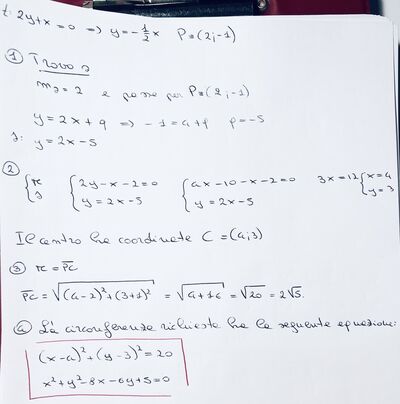 t: 2y+x=0 => y=-1/2x P≡(2;-1)
① Trovo s
m_s=2 e passa per P≡(2;-1)
y=2x+q => -1=4+q q=-5
s: y=2x-5
② { r s { 2y-x-2=0 y=2x-5 { 4x-10-x-2=0 y=2x-5 3x=12 { x=4 y=3
Il centro ha coordinate C=(4;3)
③ r=PC
PC=√(4-2)²+(3+1)² = √4+16 = √20 = 2√5.
④ La circonferenza richiesta ha la seguente equazione:
(x-4)²+(y-3)²=20
x²+y²-8x-6y+5=0